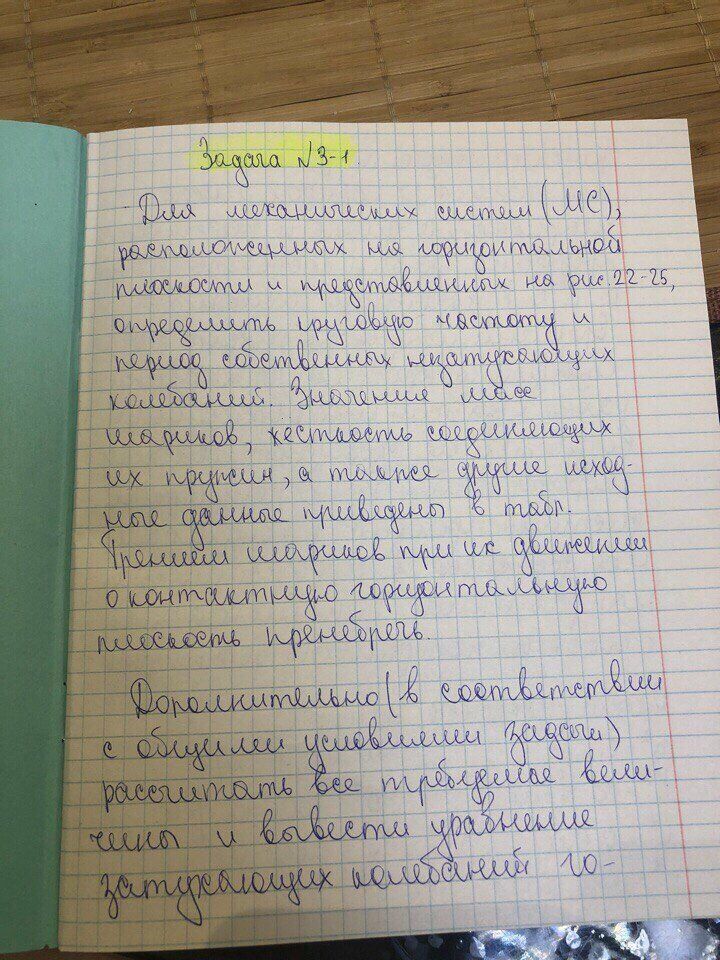 Задача №3-1
- Для механических систем (МС),
расположенных на горизонтальной
плоскости и представленных на рис. 22-25,
определить круговую частоту и
период собственных незатухающих
колебаний. Значения масс
шариков, жесткость соединяющих
их пружин, а также другие исход-
ные данные приведены в табл.
Трением шариков при их движении
о контактную горизонтальную
плоскость пренебречь.
Дополнительно (в соответствии
с общими условиями задачи)
рассчитать все требуемые вели-
чины и вывести уравнение
затухающих колебаний го-